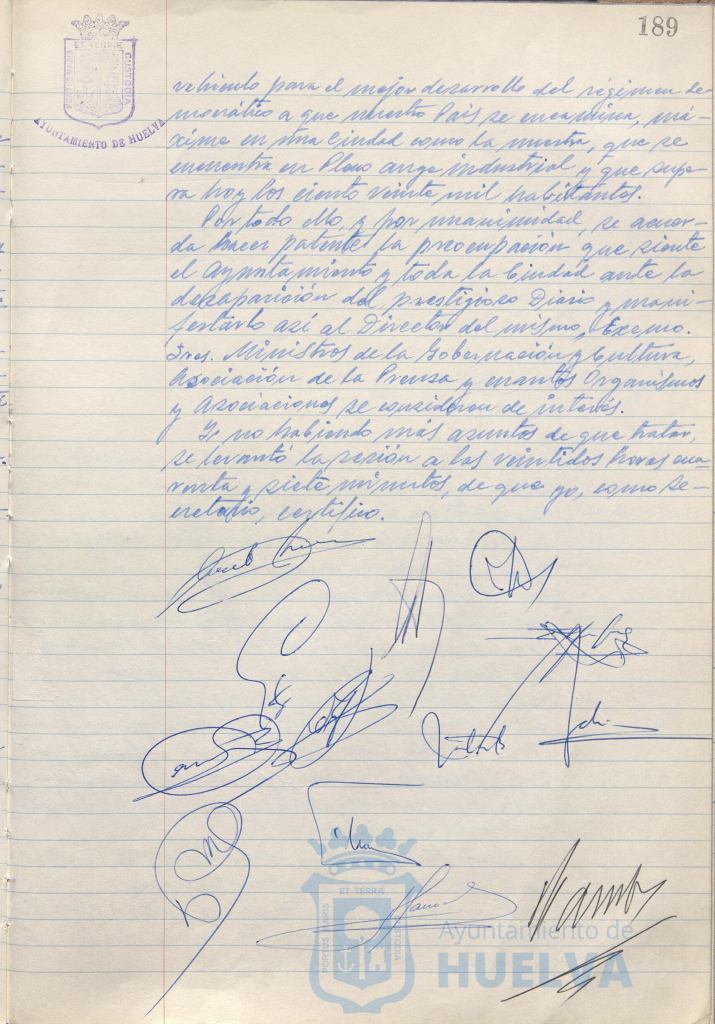 189
PORTUS MARIS
ET TERRÆ
CUSTODIA
AYUNTAMIENTO DE HUELVA
vehículo para el mejor desarrollo del régimen de-
mocrático a que nuestro País se encamina, má-
xime en una Ciudad como la nuestra, que se
encuentra en Pleno auge industrial y que supe-
ra hoy los ciento veinte mil habitantes.
Por todo ello, y por unanimidad, se acuer-
da hacer patente la preocupación que siente
el Ayuntamiento y toda la Ciudad ante la
desaparición del prestigioso Diario y mani-
festarlo así al Director del mismo, Excmo.
Sres. Ministros de la Gobernación y Cultura,
Asociación de la Prensa y cuantos Organismos
y Asociaciones se consideren de interés.
Y no habiendo más asuntos de que tratar,
se levantó la sesión a las veintidos horas cua-
renta y siete minutos, de que yo, como Se-
cretario, certifico.
PORTUS MARIS
ET TERRÆ
CUSTODIA
Ayuntamiento de
HUELVA